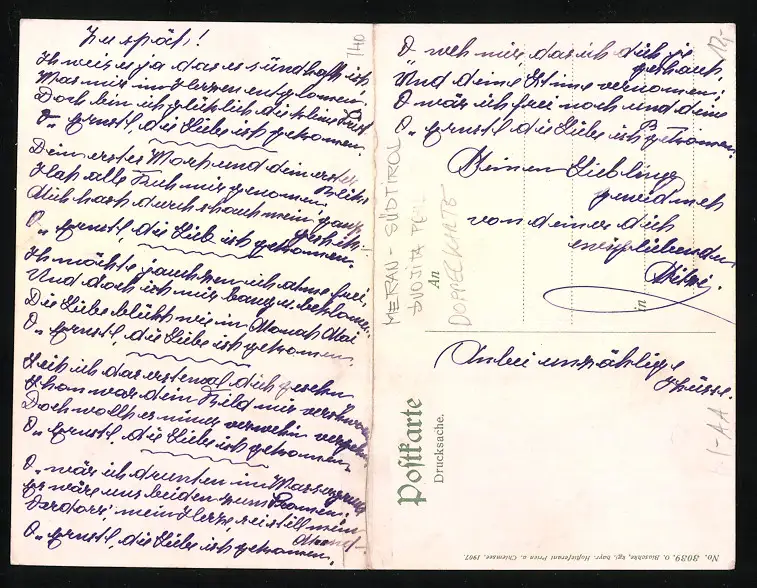 Zu spät!
Ich weis ja das es sündhaft ist
Was mir im Herzen entglomen.
Doch bin ich glüklich die kleine Frist
O" ernst, die Liebe ist gekomen.
Dein erstes Wort und dein erster Blick
Hat alle Ruh mir genomen,
dich hast durchschaut mein ganz geschik.
O" ernst, die Lieb ist gekomen.
Ich möchte jauchzen ich atme frei,
Und doch ist mir bang u. beklomen.
Die Liebe blüht wie im Monat Mai
O" ernst, die Liebe ist gekomen.
Seit ich das erstemal dich gesehn
Schon war dein Bild mir
Doch wollt es nimer
O" ernst, die Liebe ist gekomen
O" wär ich drunten im
es wäre uns beiden zum Fromen.
mein Herze, sei still mein Mund
O" ernst, die Liebe ist gekomen.
740
O weh mir das ich dich je geschaut,
Und deine Stime vernomen;
O wär ich frei noch und deine
O" ernst die Liebe ist gekomen.
Meinen Liebling
gewidmet
von deiner dich
ewigliebenden
Mitzi.
Anbei unzählige
Küsse.
12,-
MERAN - SÜDTIROL
DVOJITA
DOPPELKARTE
An
in
Postkarte
Drucksache.
1-AA
No. 3039. O. Blaschke, kgl. bayr. Hoflieferant Prien a. Chiemsee. 1907.